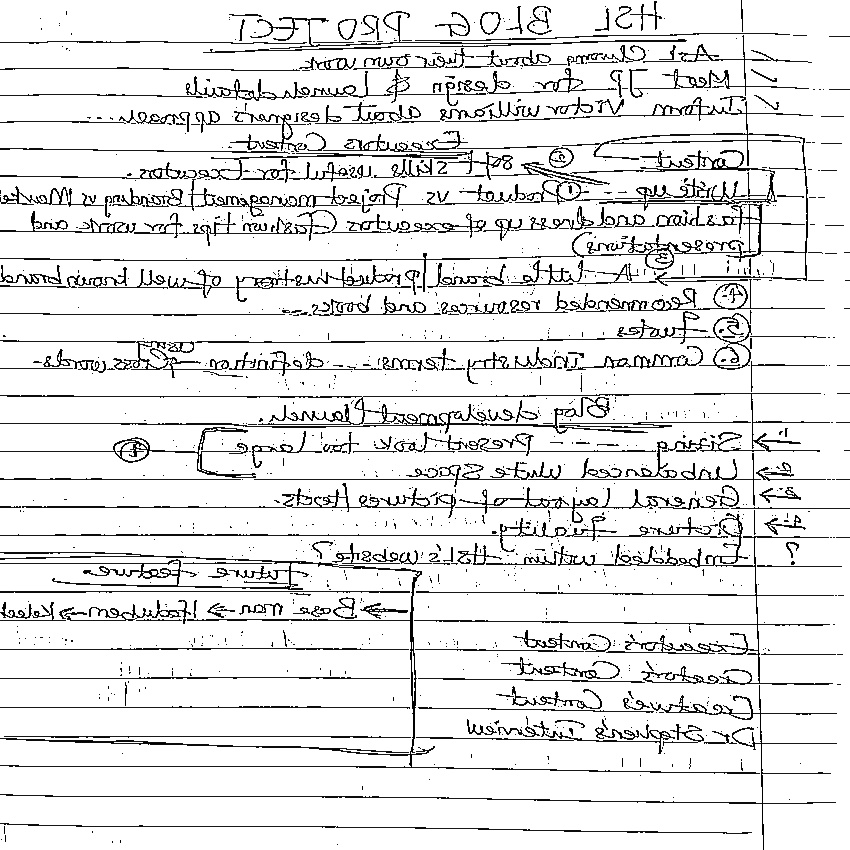 HSL BLOG PROJECT
✓ Ask Chroma about their own work
✓ Meet JP for design & launch details
✓ Inform Victor williams about designers approach...
Executors Content
Content ② soft skills useful for Executors.
Write up --- ① Product vs Project management / Branding vs Market
fashion and dress up of executors (fashion tips for work and
presentations)
③ → A little brand / product history of well known brand
④ Recommended resources and books...
⑤ Quotes
⑥ Common industry terms ... definition → Cross words-
Blog development / launch.
1. → Sizing ---- Present look too large ④
2 → Unbalanced White Space
3 → General layout of pictures / texts.
4. → Picture Quality.
? Embedded within HSL's website?
Future feature.
→ Base man →
Executor's Content
Creator's Content
Creative's Content
Dr Stephen's Interview